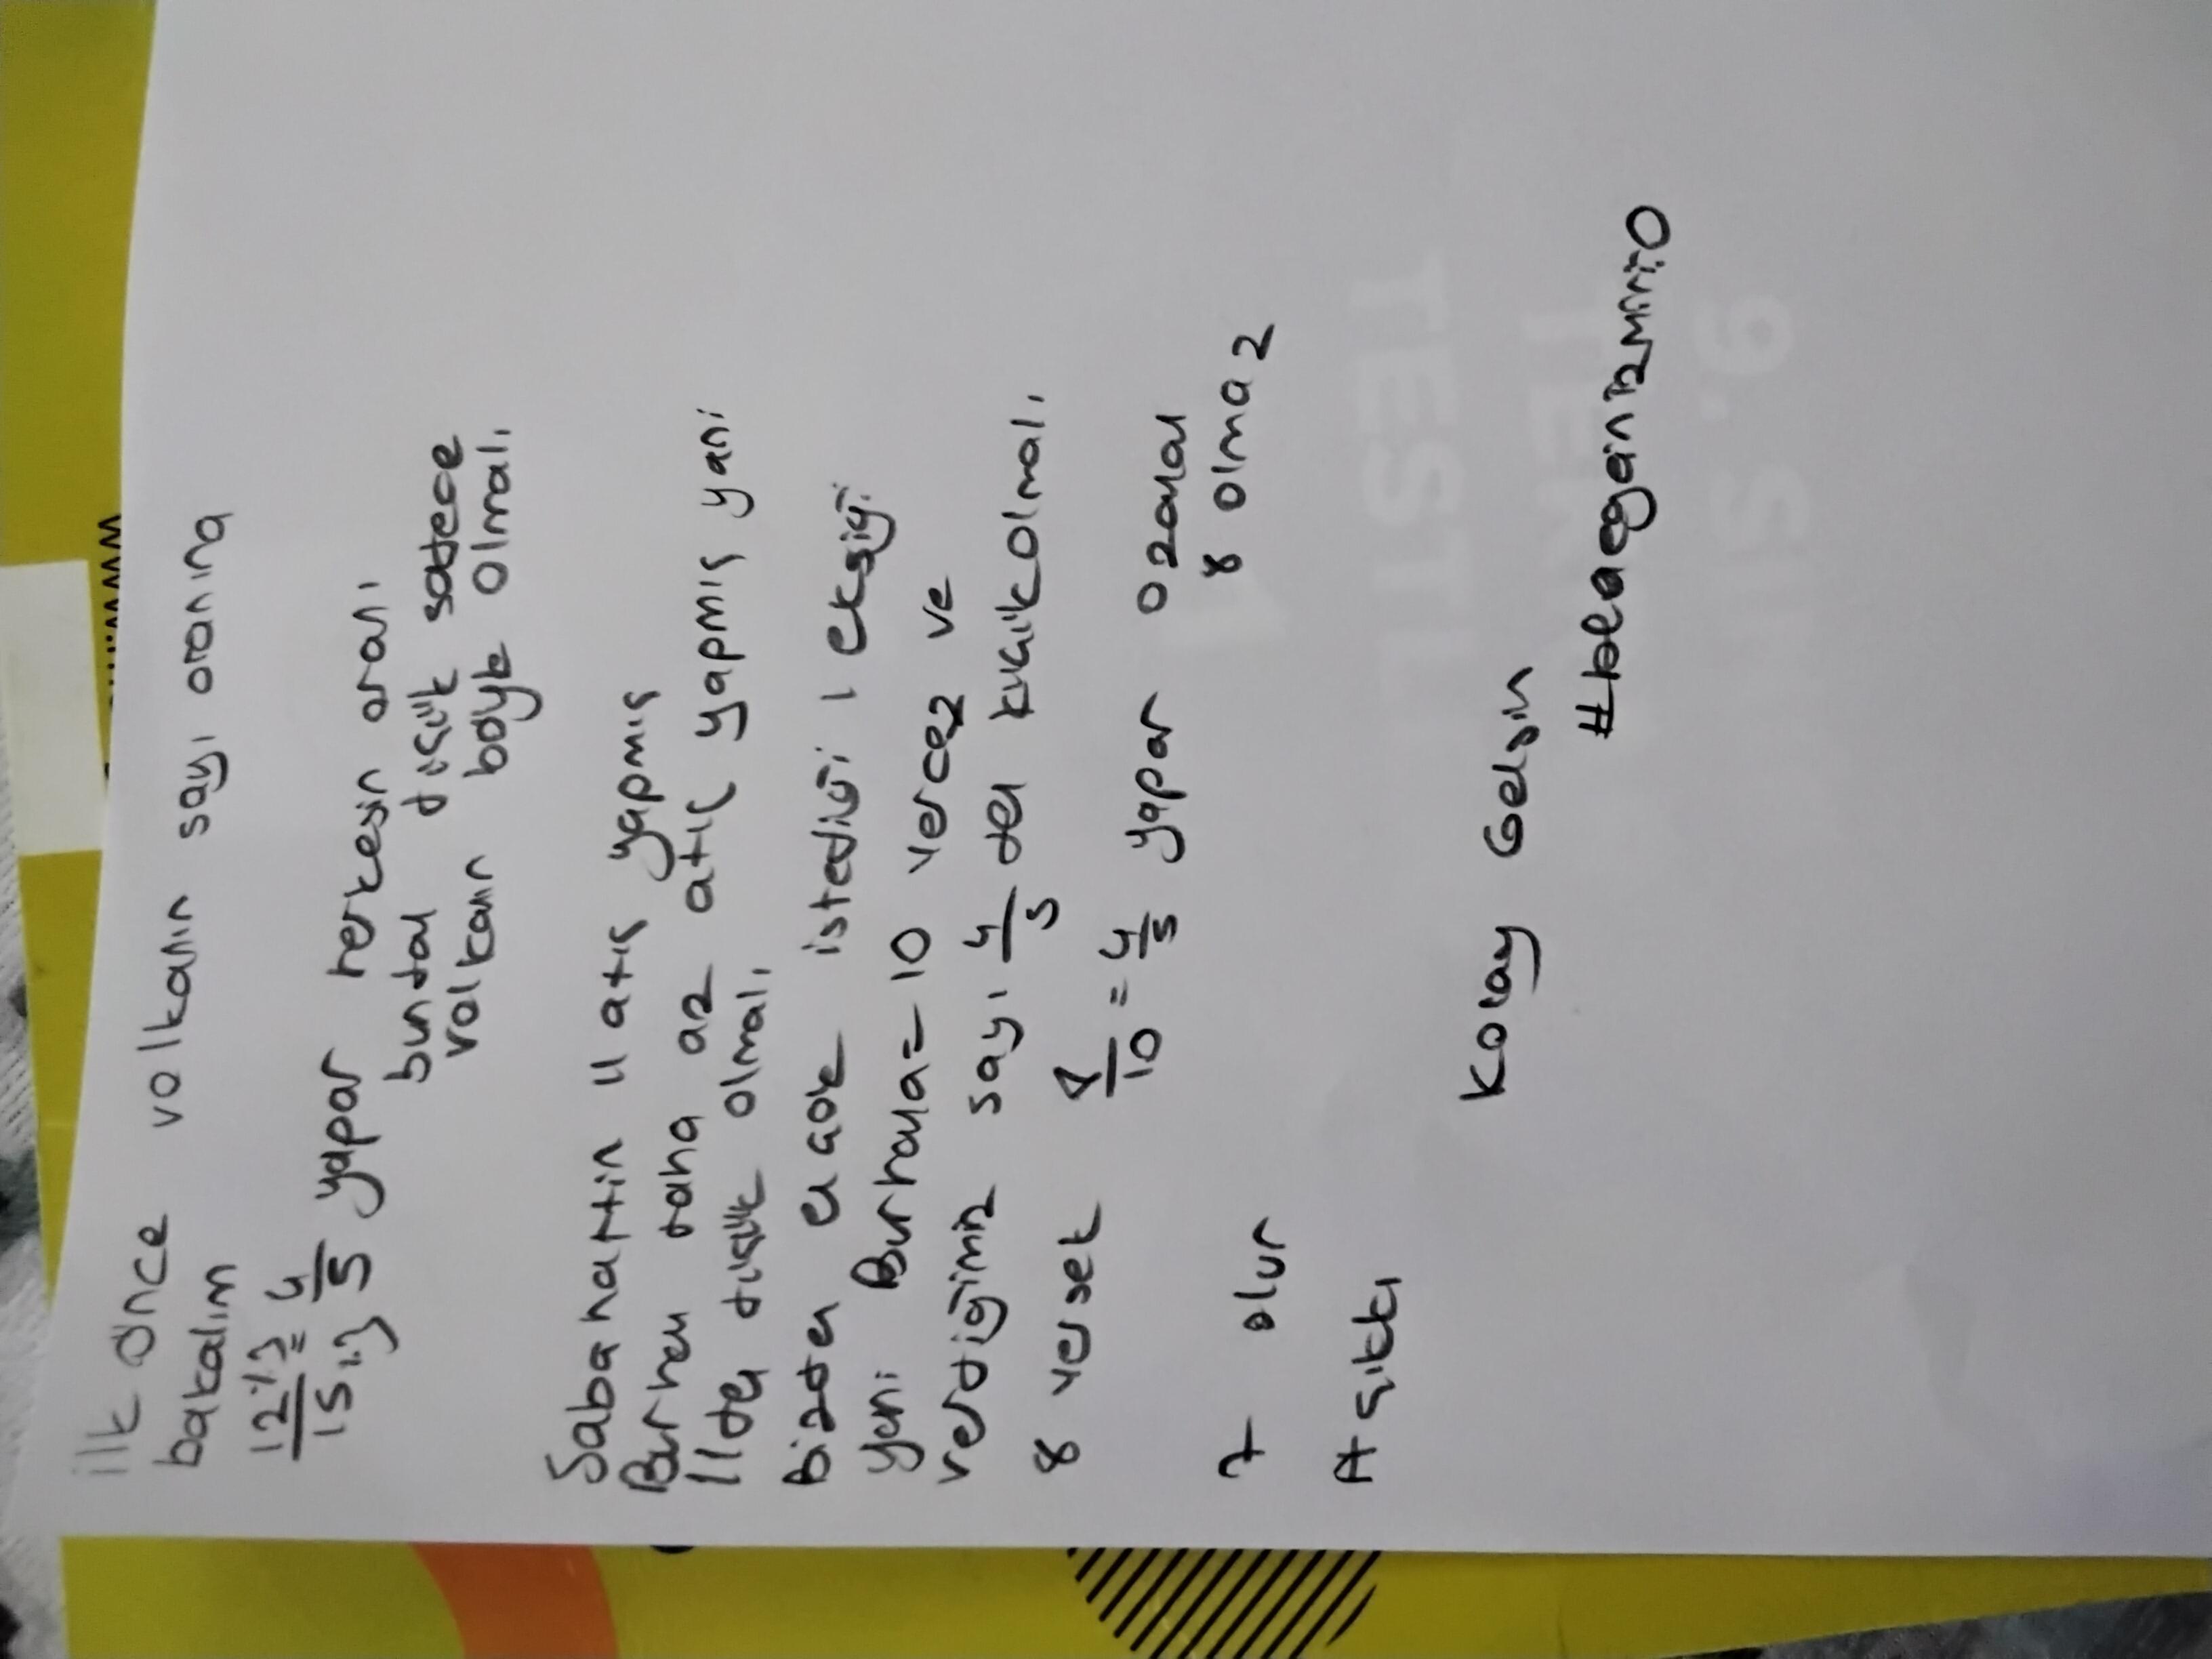 ilk önce volkanın sayı oranına
bakalım
12÷3 = 4
15÷3 5 yapar herkesin oranı
bundan düşük sadece
volkanın böyk olmalı
Sabahattin 11 atış yapmış
Burhan daha az atış yapmış yani
11den düşük olmalı
bizden en çok istediği 1 eksiği
yani Burhana= 10 vercez ve
verdiğimiz sayı 4/5 den küçük olmalı
8 versek 8/10 = 4/5 yapar o zaman
8 olmaz
7 olur
A şıkkı
Kolay Gelsin